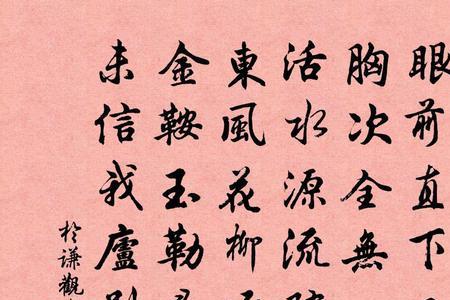 眼前直下
胸次全無
活水源流
東風花柳
金鞍玉勒
未信我廬
於謙觀